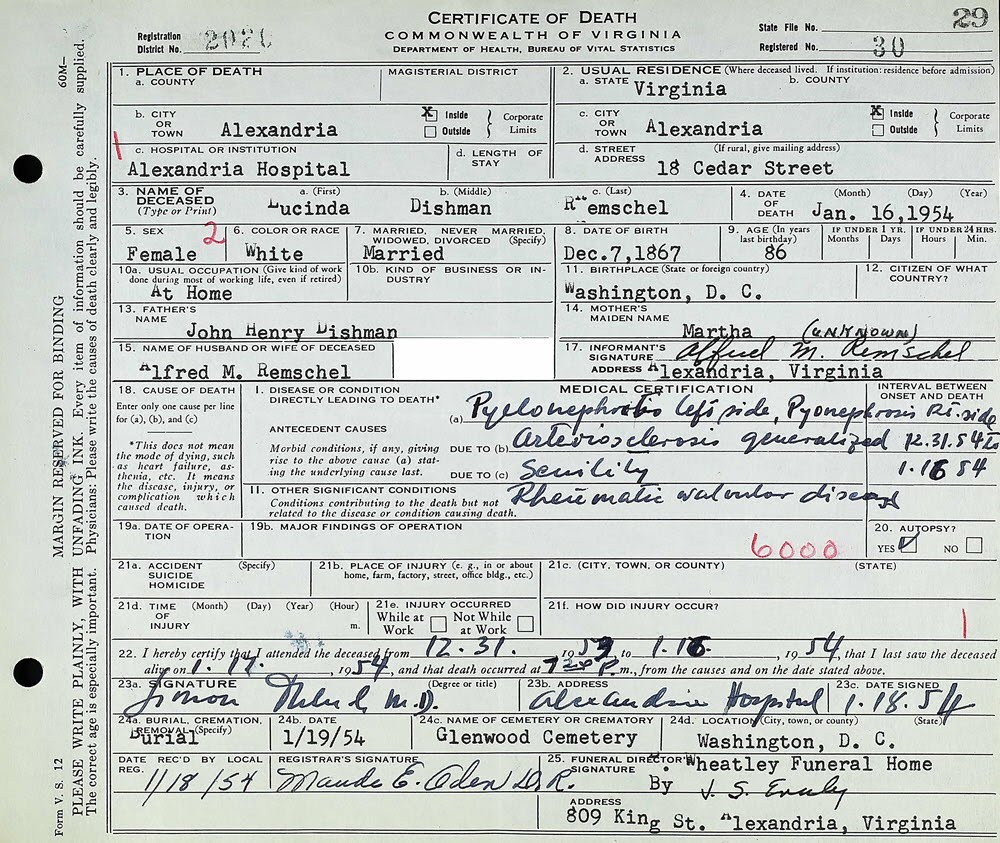 CERTIFICATE OF DEATH
COMMONWEALTH OF VIRGINIA
DEPARTMENT OF HEALTH, BUREAU OF VITAL STATISTICS
Registration District No. 2020
State File No. 29
Registered No. 30
1. PLACE OF DEATH
a. COUNTY
MAGISTERIAL DISTRICT
2. USUAL RESIDENCE (Where deceased lived. If institution: residence before admission)
a. STATE Virginia b. COUNTY
b. CITY OR TOWN Alexandria
X Inside Outside } Corporate Limits
c. CITY OR TOWN Alexandria
X Inside Outside } Corporate Limits
1
c. HOSPITAL OR INSTITUTION
Alexandria Hospital
d. LENGTH OF STAY
d. STREET ADDRESS (If rural, give mailing address)
18 Cedar Street
3. NAME OF DECEASED (Type or Print)
a. (First) Lucinda
b. (Middle) Dishman
c. (Last) Remschel
4. DATE OF DEATH (Month) (Day) (Year)
Jan. 16,1954
5. SEX 2
Female
6. COLOR OR RACE
White
7. MARRIED, NEVER MARRIED, WIDOWED, DIVORCED (Specify)
Married
8. DATE OF BIRTH
Dec.7,1867
9. AGE (In years last birthday)
86
IF UNDER 1 YR. Months Days
IF UNDER 24 HRS. Hours Min.
10a. USUAL OCCUPATION (Give kind of work done during most of working life, even if retired)
At Home
10b. KIND OF BUSINESS OR INDUSTRY
11. BIRTHPLACE (State or foreign country)
Washington, D. C.
12. CITIZEN OF WHAT COUNTRY?
13. FATHER'S NAME
John Henry Dishman
14. MOTHER'S MAIDEN NAME
Martha (UNKNOWN)
15. NAME OF HUSBAND OR WIFE OF DECEASED
Alfred M. Remschel
17. INFORMANT'S SIGNATURE Alfred M. Remschel
ADDRESS Alexandria, Virginia
18. CAUSE OF DEATH
Enter only one cause per line for (a), (b), and (c)
*This does not mean the mode of dying, such as heart failure, asthenia, etc. It means the disease, injury, or complication which caused death.
MEDICAL CERTIFICATION
INTERVAL BETWEEN ONSET AND DEATH
I. DISEASE OR CONDITION DIRECTLY LEADING TO DEATH*
(a) Pyelonephritis left side, Pyonephrosis Rt. side
ANTECEDENT CAUSES
Morbid conditions, if any, giving rise to the above cause (a) stating the underlying cause last.
DUE TO (b) Arteriosclerosis generalized 12.31.54 to
DUE TO (c) Senility 1.16 54
II. OTHER SIGNIFICANT CONDITIONS
Conditions contributing to the death but not related to the disease or condition causing death.
Rheumatic valvular disease
19a. DATE OF OPERATION
19b. MAJOR FINDINGS OF OPERATION
6000
20. AUTOPSY?
YES ✓ NO
21a. ACCIDENT SUICIDE HOMICIDE (Specify)
21b. PLACE OF INJURY (e. g., in or about home, farm, factory, street, office bldg., etc.)
21c. (CITY, TOWN, OR COUNTY) (STATE)
21d. TIME OF INJURY (Month) (Day) (Year) (Hour) m.
21e. INJURY OCCURRED
While at Work Not While at Work
21f. HOW DID INJURY OCCUR?
1
22. I hereby certify that I attended the deceased from 12.31. 1953 to 1.16. , 1954, that I last saw the deceased
alive on 1.17. , 1954, and that death occurred at P.m., from the causes and on the date stated above.
23a. SIGNATURE (Degree or title)
Simon M.D.
23b. ADDRESS
Alexandria Hospital
23c. DATE SIGNED
1.18.54
24a. BURIAL, CREMATION, REMOVAL (Specify)
Burial
24b. DATE
1/19/54
24c. NAME OF CEMETERY OR CREMATORY
Glenwood Cemetery
24d. LOCATION (City, town, or county) (State)
Washington, D. C.
DATE REC'D BY LOCAL REG.
1/18/54
REGISTRAR'S SIGNATURE
Maude E. Oden D.R.
25. FUNERAL DIRECTOR'S SIGNATURE Wheatley Funeral Home
By J. S.
ADDRESS
809 King St. Alexandria, Virginia
60M—
MARGIN RESERVED FOR BINDING
PLEASE WRITE PLAINLY, WITH UNFADING INK. Every item of information should be carefully supplied.
The correct age is especially important. Physicians: Please write the causes of death clearly and legibly.
Form V. S. 12